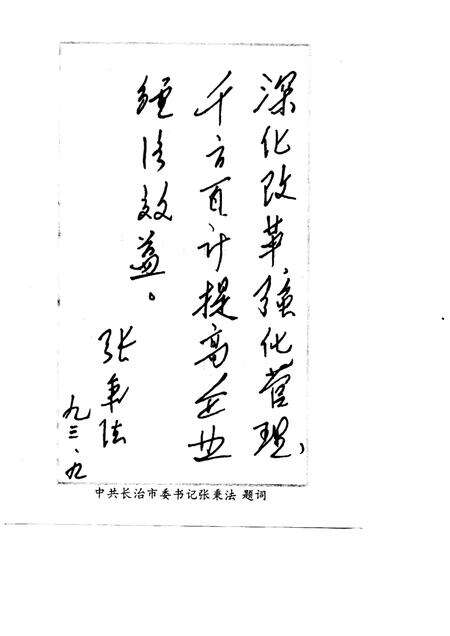 深化改革强化管理、
千方百计提高企业
经济效益。
张秉法
九三·九
中共长治市委书记张秉法 题词